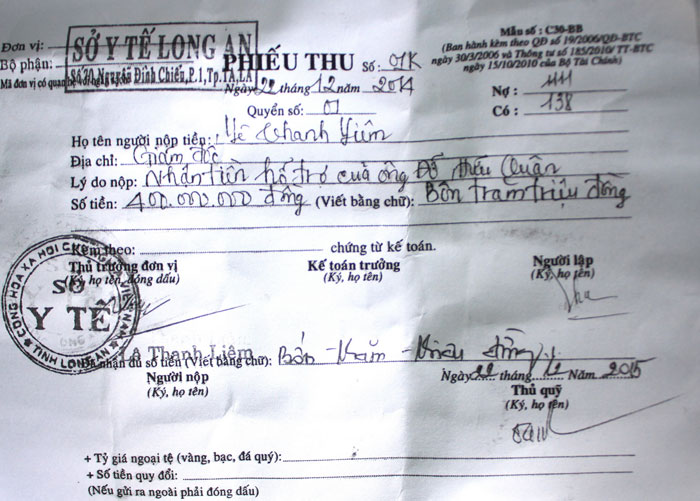 Đơn vị:
SỞ Y TẾ LONG AN
Bộ phận:
Số 70 Nguyễn Đình Chiến,P.1,Tp.TA,LA
Mã đơn vị có quan hệ
PHIẾU THU Số: 01K
Ngày 22 tháng 12 năm 2014
Quyển số: 01
Mẫu số : C30-BB
(Ban hành kèm theo QĐ số 19/2006/QĐ-BTC
ngày 30/3/2006 và Thông tư số 185/2010/ TT-BTC
ngày 15/10/2010 của Bộ Tài Chính)
Nợ : 1111
Có : 138
Họ tên người nộp tiền: Lê Thanh Liêm
Địa chỉ: Giám đốc
Lý do nộp: Nhận tiền hỗ trợ của ông Đỗ Hữu Quân
Số tiền: 400.000.000 đồng (Viết bằng chữ): Bốn trăm triệu đồng
Kèm theo: chứng từ kế toán.
Thủ trưởng đơn vị Kế toán trưởng Người lập
(Ký, họ tên, đóng dấu) (Ký, họ tên) (Ký, họ tên)
CỘNG HÒA XÃ HỘI CHỦ NGHĨA VIỆT NAM
SỞ
Y TẾ
TỈNH LONG AN
Lê Thanh Liêm
Đã nhận đủ số tiền (Viết bằng chữ): Bốn trăm triệu đồng
Ngày 22 tháng 12 Năm 2015
Người nộp Thủ quỹ
(Ký, họ tên) (Ký, họ tên)
+ Tỷ giá ngoại tệ (vàng, bạc, đá quý):
+ Số tiền quy đổi:
(Nếu gửi ra ngoài phải đóng dấu)